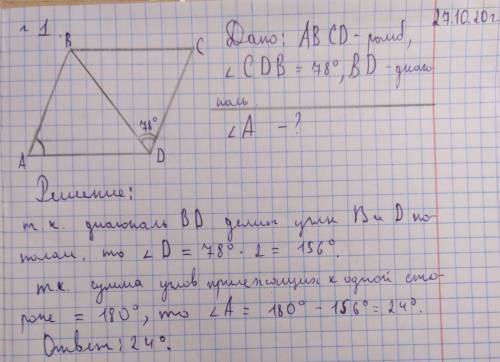 27.10.20г.
г 1.
B
C
Дано: ABCD - ромб,
∠CDB = 78°, BD - диаго
наль
∠A - ?
78°
A
D
Решение:
т.к. диагональ BD делит углы B и D по
полам, то ∠D = 78° · 2 = 156°.
т.к. сумма углов прилежащих к одной сто
роне = 180°, то ∠A = 180° - 156° = 24°.
Ответ: 24°.